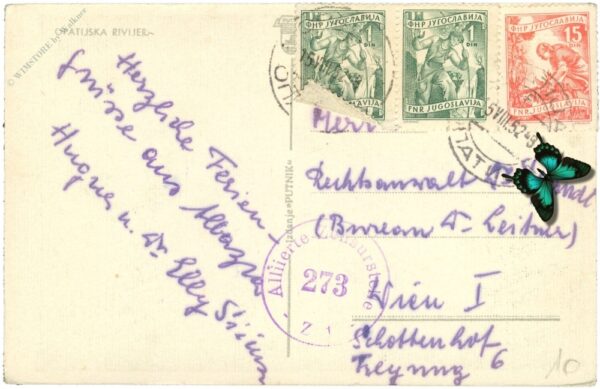 © WIMSTORE by Falkner
OPATIJSKA RIVIJERA
Herzliche Ferien-
grüsse aus Abbazia
Hugues u. Dr. Elly
izdanje »PUTNIK«
ФНР ЈУГОСЛАВИЈА
1
DIN
FNR JUGOSLAVIJA
ФНР ЈУГОСЛАВИЈА
1
DIN
FNR JUGOSLAVIJA
ФНР ЈУГОСЛАВИЈА
15
DIN
FNR JUGOSLAVIJA
Herrn
Rechtsanwalt
(Bureau Dr. Leitner)
Wien I
Schottenhof
Freyung 6
Alliierte Zensurstelle
273
10